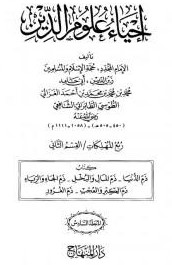 إحياء علوم الدين
تأليف
الإمام المجدد، حجة الإسلام والمسلمين
زين الدين، أبي حامد
محمد بن محمد بن محمد بن أحمد الغزالي
الطوسي الطابراني الشافعي
رضي الله عنه
(٤٥٠ - ٥٠٥هـ) (١٠٥٨ - ١١١١م)
ربع المهلكات / القسم الثاني
كتاب
ذم الدنيا - ذم المال والبخل - ذم الجاه والرياء
ذم الكبر والعجب - ذم الغرور
المجلد السادس
دار المنهاج